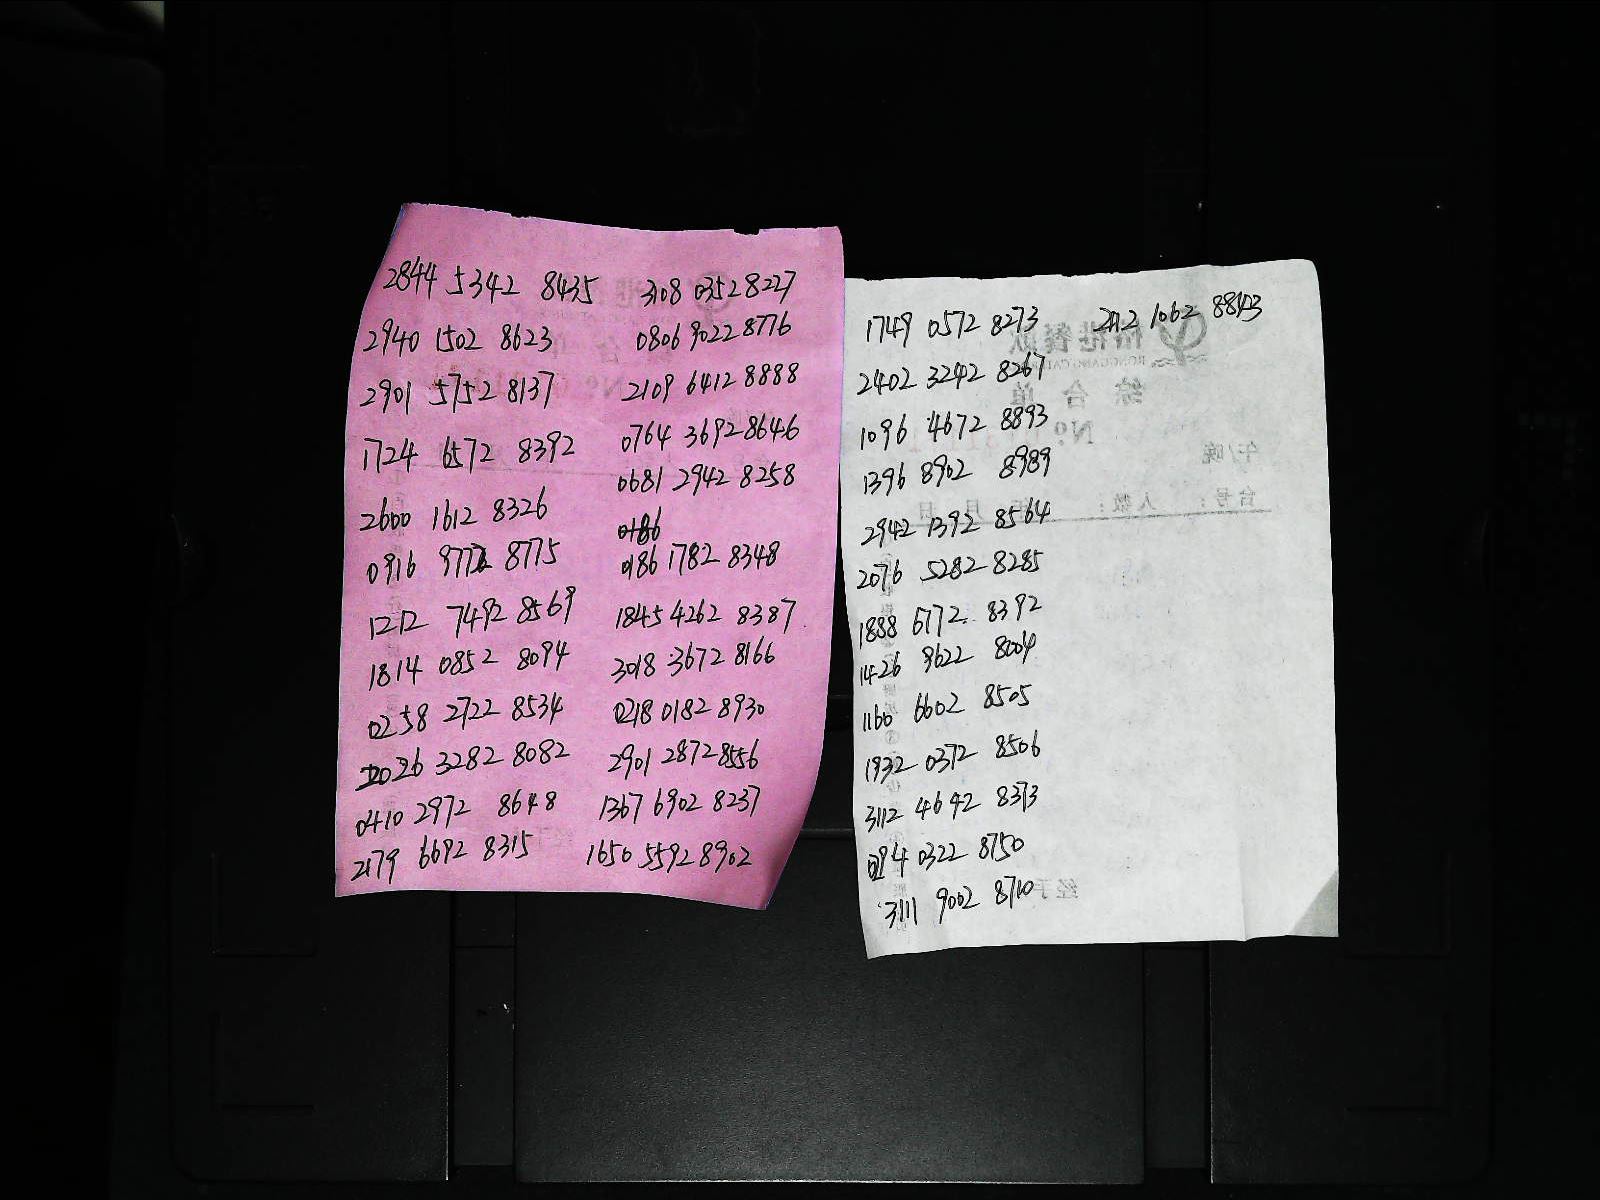 2844 5342 8435
2940 1502 8623
2901 5752 8137
1724 6572 8392
2600 1612 8326
0916 9772 8775
1212 7492 8569
1814 0852 8094
0258 2722 8534
2026 3282 8082
0410 2972 8648
2179 6692 8315
3108 0352 8227
0806 9022 8776
2109 6412 8888
0764 3692 8646
0681 2942 8258
0186
0186 1782 8348
1845 4262 8387
3018 3672 8166
0218 0182 8930
2901 2872 8556
1367 6902 8237
1650 5592 8902
1749 0572 8273
2402 3242 8267
1096 4672 8893
1396 8902 8989
2942 1392 8564
2076 5282 8285
1888 6772 8392
1426 9622 8004
1160 6602 8505
1932 0372 8506
3112 4642 8373
0294 0322 8750
3111 9002 8710
2112 1062
综合单
No
午/晚
台号: 人数: 年 月 日
经手